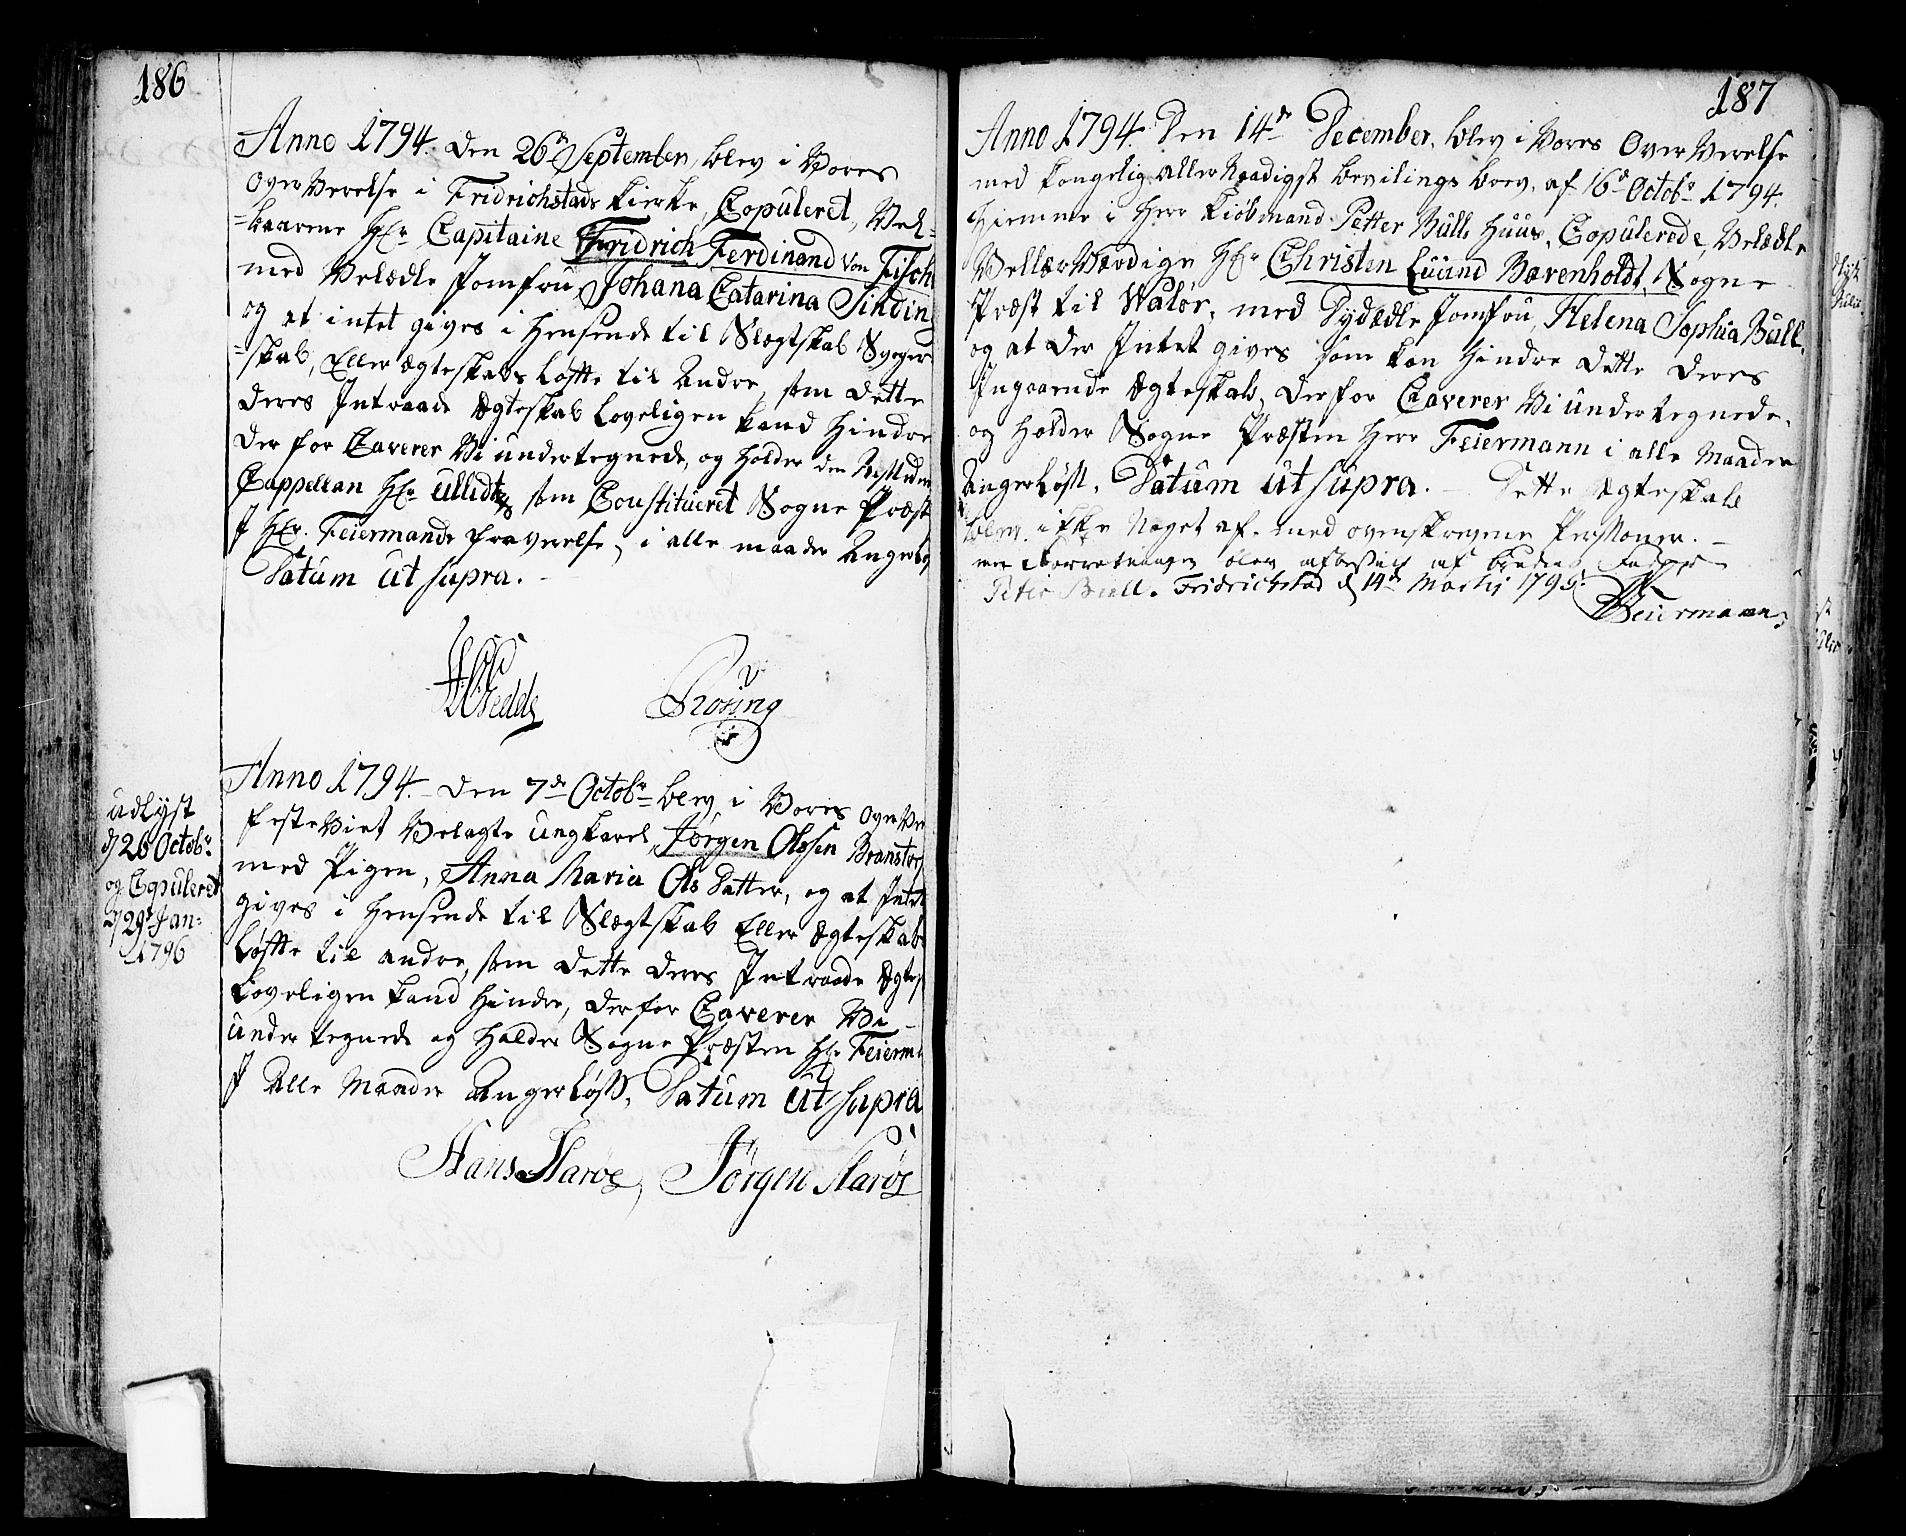 186
Anno 1794. Den 26de September, blev i Vores
Over Værelse i Fridrichstads Kierke, Copuleret, Vel-
-baarene Hr. Capitaine Fridrich Ferdinand von Fisch
med Velædle Jomfru, Johana Catarina Sinding
og at intet gives i Hensende til Slægtskab Svoger
-skab, Eller ægteskabs Løfte til Andre, som dette
Deres Intraade Ægteskab Loveligen kand Hindre
Der for Caverer Vi undertegnede, og Holder den
Cappellan Hr. Ullidtz som Constitueret Sogne Præst
I Hr. Feiermands fraværelse, i alle maader Angerløs
Datum ut supra.
Rosing
Anno 1794. Den 7de Octobr blev i Vores Over Væ
festeViet Velagte ungkarl, Jørgen Olssen Branstor
med Pigen, Anna Maria Ols Datter, og at Intet
gives i Hensende til Slægtskab Eller Ægteskabs
Løfte til andre, som dette deres Intraade Ægtes
Loveligen kand Hindre, Derfor Caverer Vi
under tegnede og Holder Sogne Præsten Hr. Feierm
I Alle Maader AngerLøss, Datum ut supra
Hans Harøe, Jørgen Harøe
udlyst
d 26 Octobr
og Copuleret
d 29de Jan:
1796
187
Anno 1794. Den 14de December, blev i Vores Over Værelse
med Kongelig Aller Naadigst bevilings brev, af 16de Octobr 1794.
Hiemme i Herr Kiøbmand Petter Bulls Huus, Copulerede, Velædle
VellærVærdige Hr. Christen Luund Barenholdt, Sogne
Præst til Walør, med Dydædle Jomfru, Helena Sophia Bull,
og at Der Intet gives som kan Hindre dette Deres
Ingaaende Ægteskab, Derfor Caverer Vi undertegnede,
og Holder Sogne Præsten Herr Feiermann i alle Maader
AngerLøss, Datum ut supra. Dette Ægteskab
blev ikke Noget af. med ovenskrevne Personer.
blev af Fader
Peter Bull. Fridrichstad d 14de Martij 1795.
Feiermann